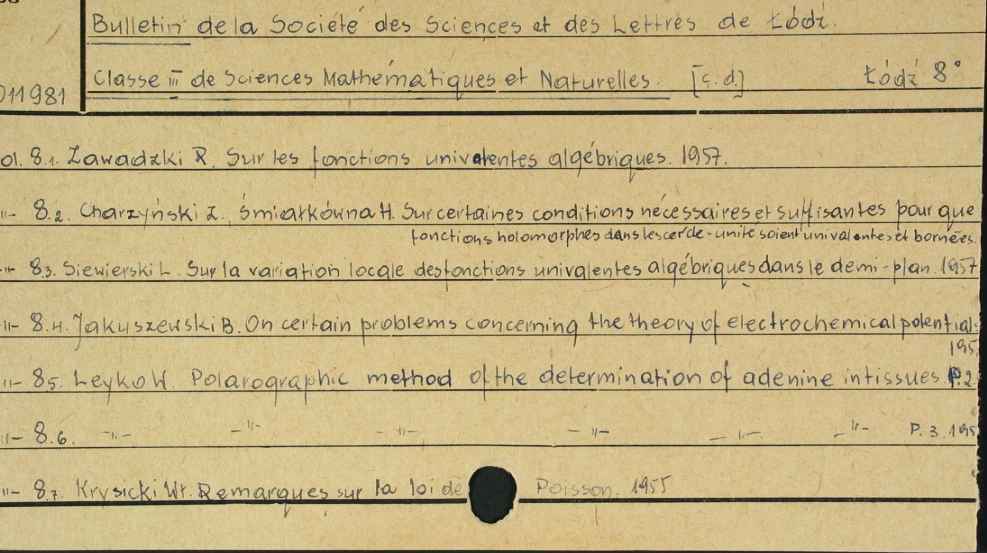 Bulletin de la Société des Sciences et des Lettres de Łódź.
Classe III de Sciences Mathématiques et Naturelles. [c.d.] Łódź 8°
011981
ol. 8.1. Zawadzki R. Sur les fonctions univalentes algébriques. 1957.
-"- 8.2. Charzyński Z., Śmiałkówna H. Sur certaines conditions nécessaires et suffisantes pour que
fonctions holomorphes dans le cercle-unité soient univalentes et bornées.
-"- 8.3. Siewierski L. Sur la variation locale des fonctions univalentes algébriques dans le demi-plan. 1957
-"- 8.4. Jakuszewski B. On certain problems concerning the theory of electrochemical potential.
195
-"- 8.5. Leyko W. Polarographic method of the determination of adenine in tissues. P.2
-"- 8.6. -"- -"- -"- -"- -"- -"- P. 3. 195
-"- 8.7. Krysicki Wł. Remarques sur la loi de Poisson. 1955